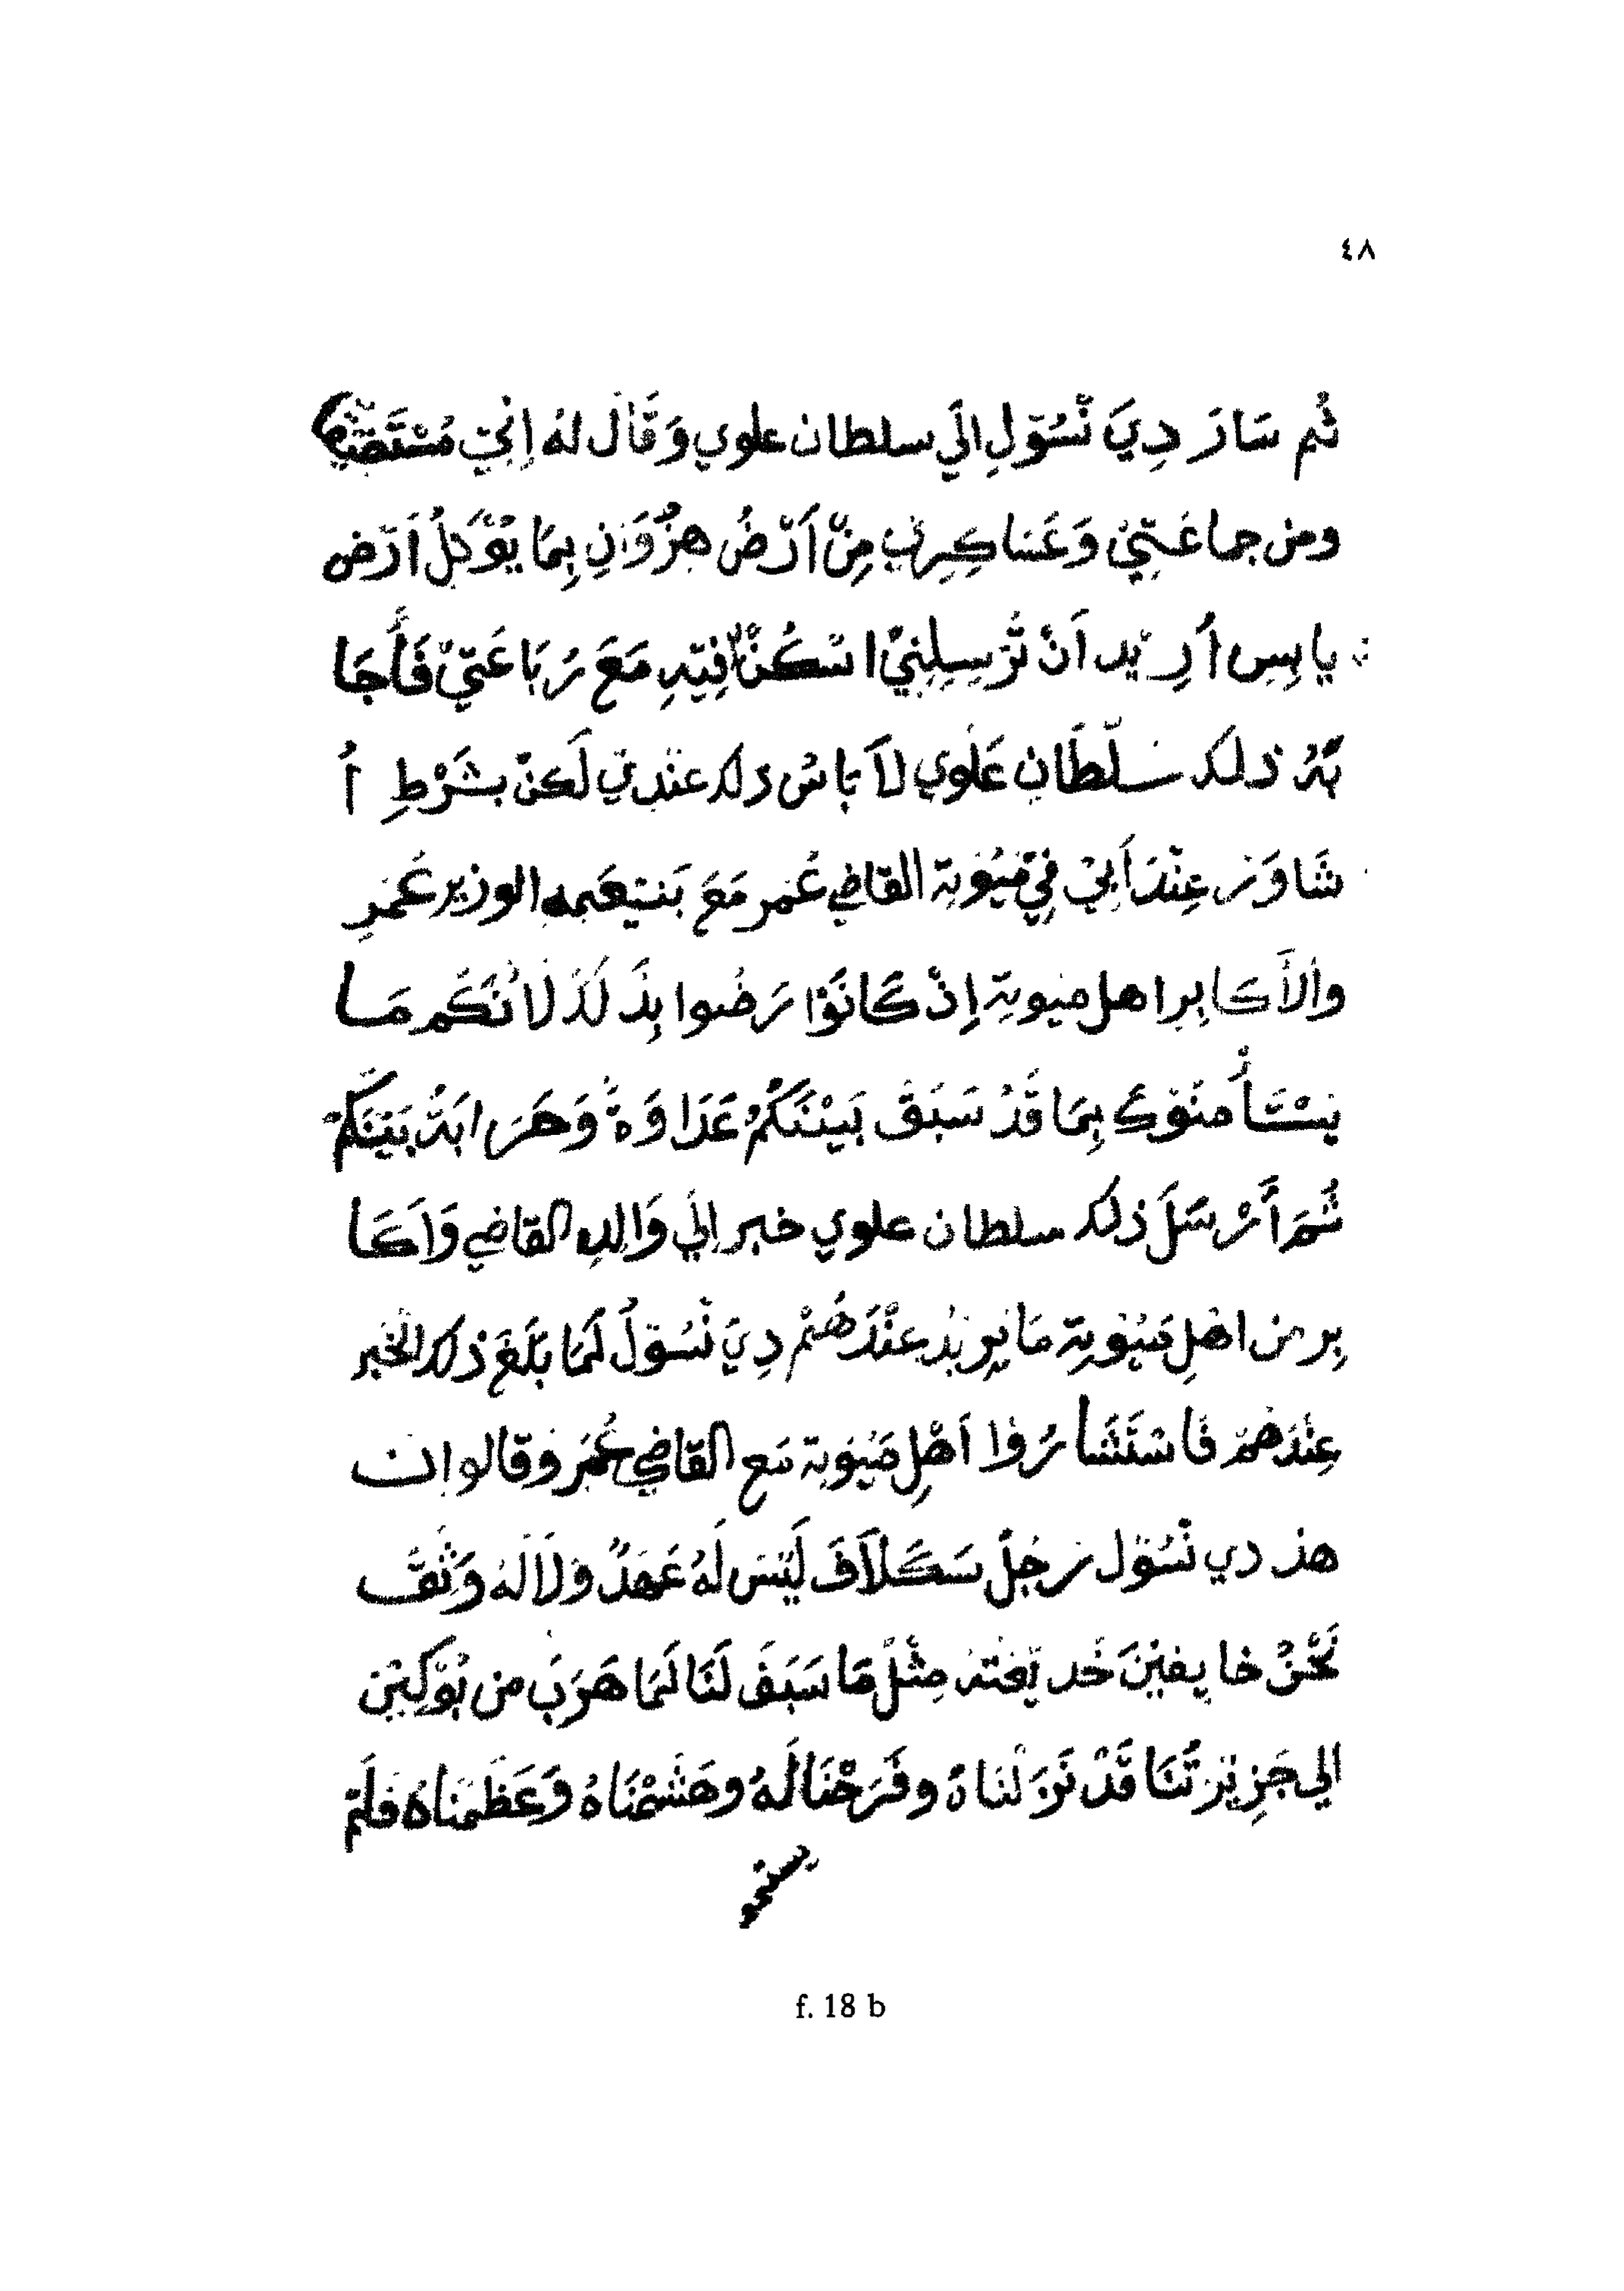 ٤٨
ثم سَارَ دِيَ نْسُوْلِ الَي سلطان علوي وَقَالَ لهُ اِنِيّ
ومن جماعَتِيْ وَعَسَاكِرِيْ مِنْ اَرْضُ هِزْوَانِ بِمَا يُوْكِلُ اَرْض
يابِس اُرِيْد اَنْ تُرْسِلِنِيْ اسْكُنْ فِيْهِ مَعَ رَبَاعَتِيْ فَأَجَا
بَهُ ذلك سلْطَانِ عَلَوي لاَ بَاسُ ذلك عنْدِيْ لَكنّ بشَرْطِ اُ
شَاوَر عِنْدَ اَبِيْ فِيْ مَيُوْتِة القاضِي عُمَر مَعَ بَنيعَمِهِ الوزير عُمَرِ
والاَكَابِر اهل ميوتة اِنْ كَانَوْا رَضُوا بِذَ لَكَ لاَنَكُم مَا
يَسْتَأمنَوْك بِمَا قَدْ سَبَقَ بَيْنَكُمْ عَدَاوَةٌ وَحَرَابَةٌ بَيْنَكُمْ
ثُمَ أَرْسَلَ ذلك سلطان علوي خبر اِلَي وَالِدِه القاضي وَاَكَا
بِر من اهْلِ مَيُوْتِة مَا يُرِيْدُ عِنْدَهُمْ دِيَ نْسُوْلُ لَمَا بَلَغَ ذلك الخَبر
عِنْدَهُمْ فَاسْتَشَارُوْا اَهْلِ مَيُوْتة مَع القاضِي عُمَر وَقالوا ان
هذ دي نْسُوْل رَجُلٌ سَكَلاَفَ لَيْسَ لَهُ عَهَدٌ وَلاَ لَهُ وَثَقٌ
نَحْنُ خايفيْنَ مِثْلُ مَا سَبَقَ لَنَا لَمَا هَرَبَ من بُوْكِيْن
الي جَزِيْرتُنَا قَدْ نَزَلْنَاهُ وفَرَحْنَا لَهُ وحَشَمْنَاهُ وَعَظَمْنَاهُ فلَمْ
f. 18 b